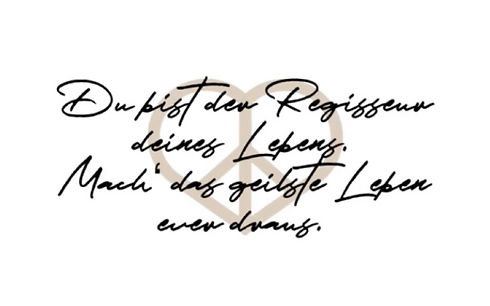 Du bist der Regisseur
deines Lebens.
Mach' das geilste Leben
ever draus.